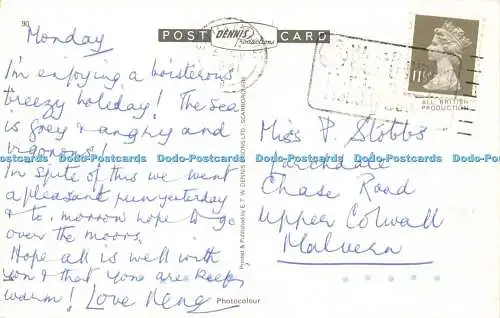 90
Monday
POST DENNIS Productions CARD
I'm enjoying a boisterous
breezy holiday! The sea
is grey & angry and
vigorous!
In spite of this we went
a pleasant run yesterday
& to-morrow hope to go
over the moors.
Hope all is well with
you & that you are keeping
warm! Love
Printed & Published by E.T.W. DENNIS & SONS LTD., SCARBOROUGH
Photocolour
11½
ALL BRITISH
PRODUCTION
Miss P. Stobbs
Larchdale
Chase Road
Upper Colwall
Malvern
Dodo-Postcards Dodo-Postcards Dodo-Postcards Dodo-Postcards Dodo-Postcards Dodo-Postcards